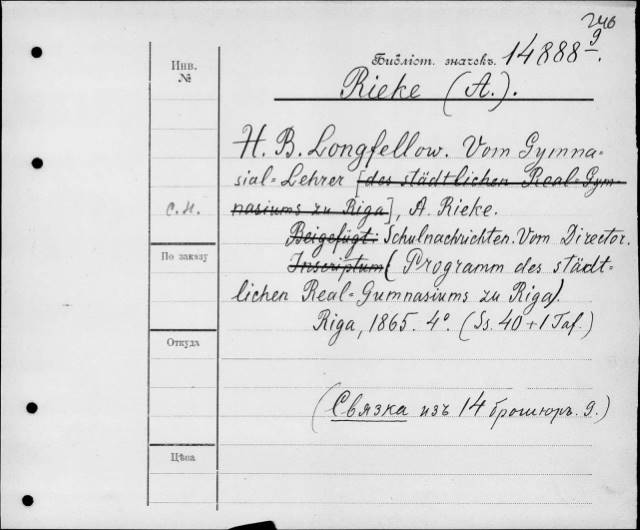 246
Библіот. значекъ. 14888 9/-.
Инв.
№
Rieke (A.).
H. B. Longfellow. Vom Gymna=
sial=Lehrer [des städtlichen Real=Gym-
С.Н.
nasiums zu Riga], A. Rieke.
Beigefügt: Schulnachrichten. Vom Director.
По заказу
Inscriptum (Programm des städt=
lichen Real=Gumnasiums zu Riga).
Riga, 1865. 4°. (Ss. 40+1 Taf.)
Откуда
(Связка изъ 14 брошюръ. 9.)
Цѣна